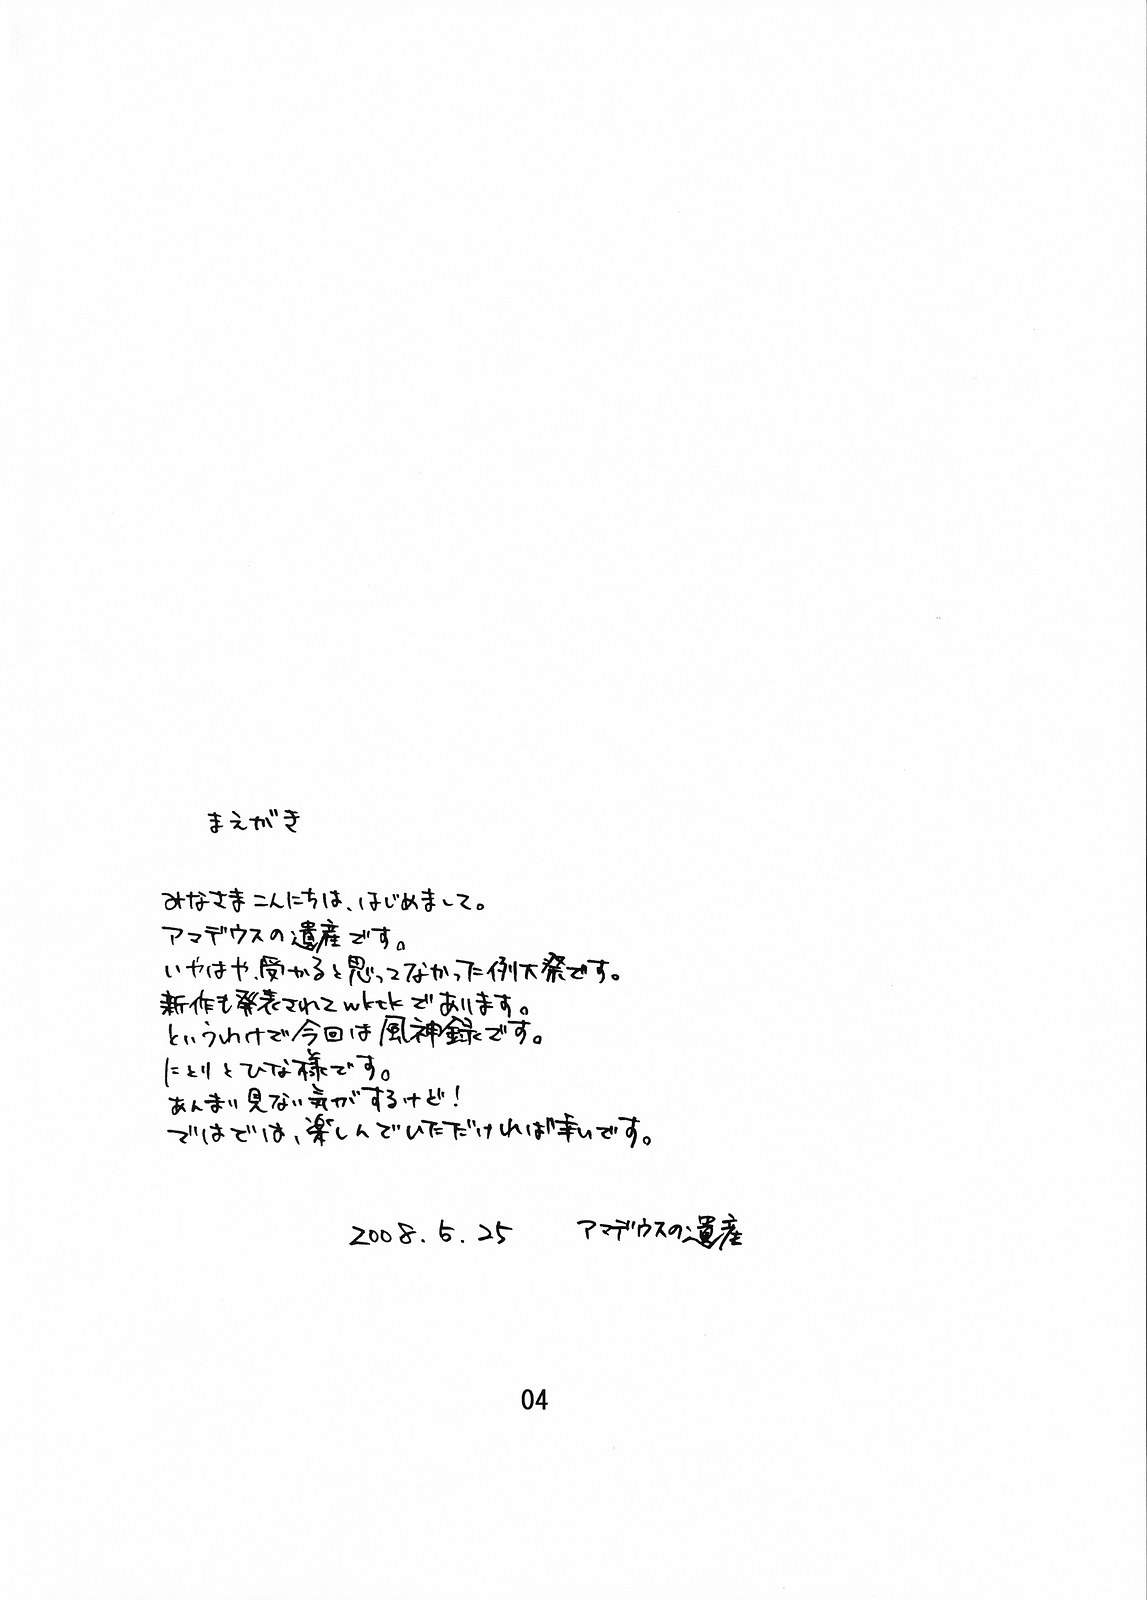 まえがき
みなさまこんにちは、はじめまして。
アマデウスの遺産です。
いやはや、受かると思ってなかった例大祭です。
新作も発表されてwktkであります。
というわけで今回は風神録です。
にとりとひな様です。
あんまり見ない気がするけど!
ではでは、楽しんでいただければ幸いです。
2008.5.25 アマデウスの遺産
04